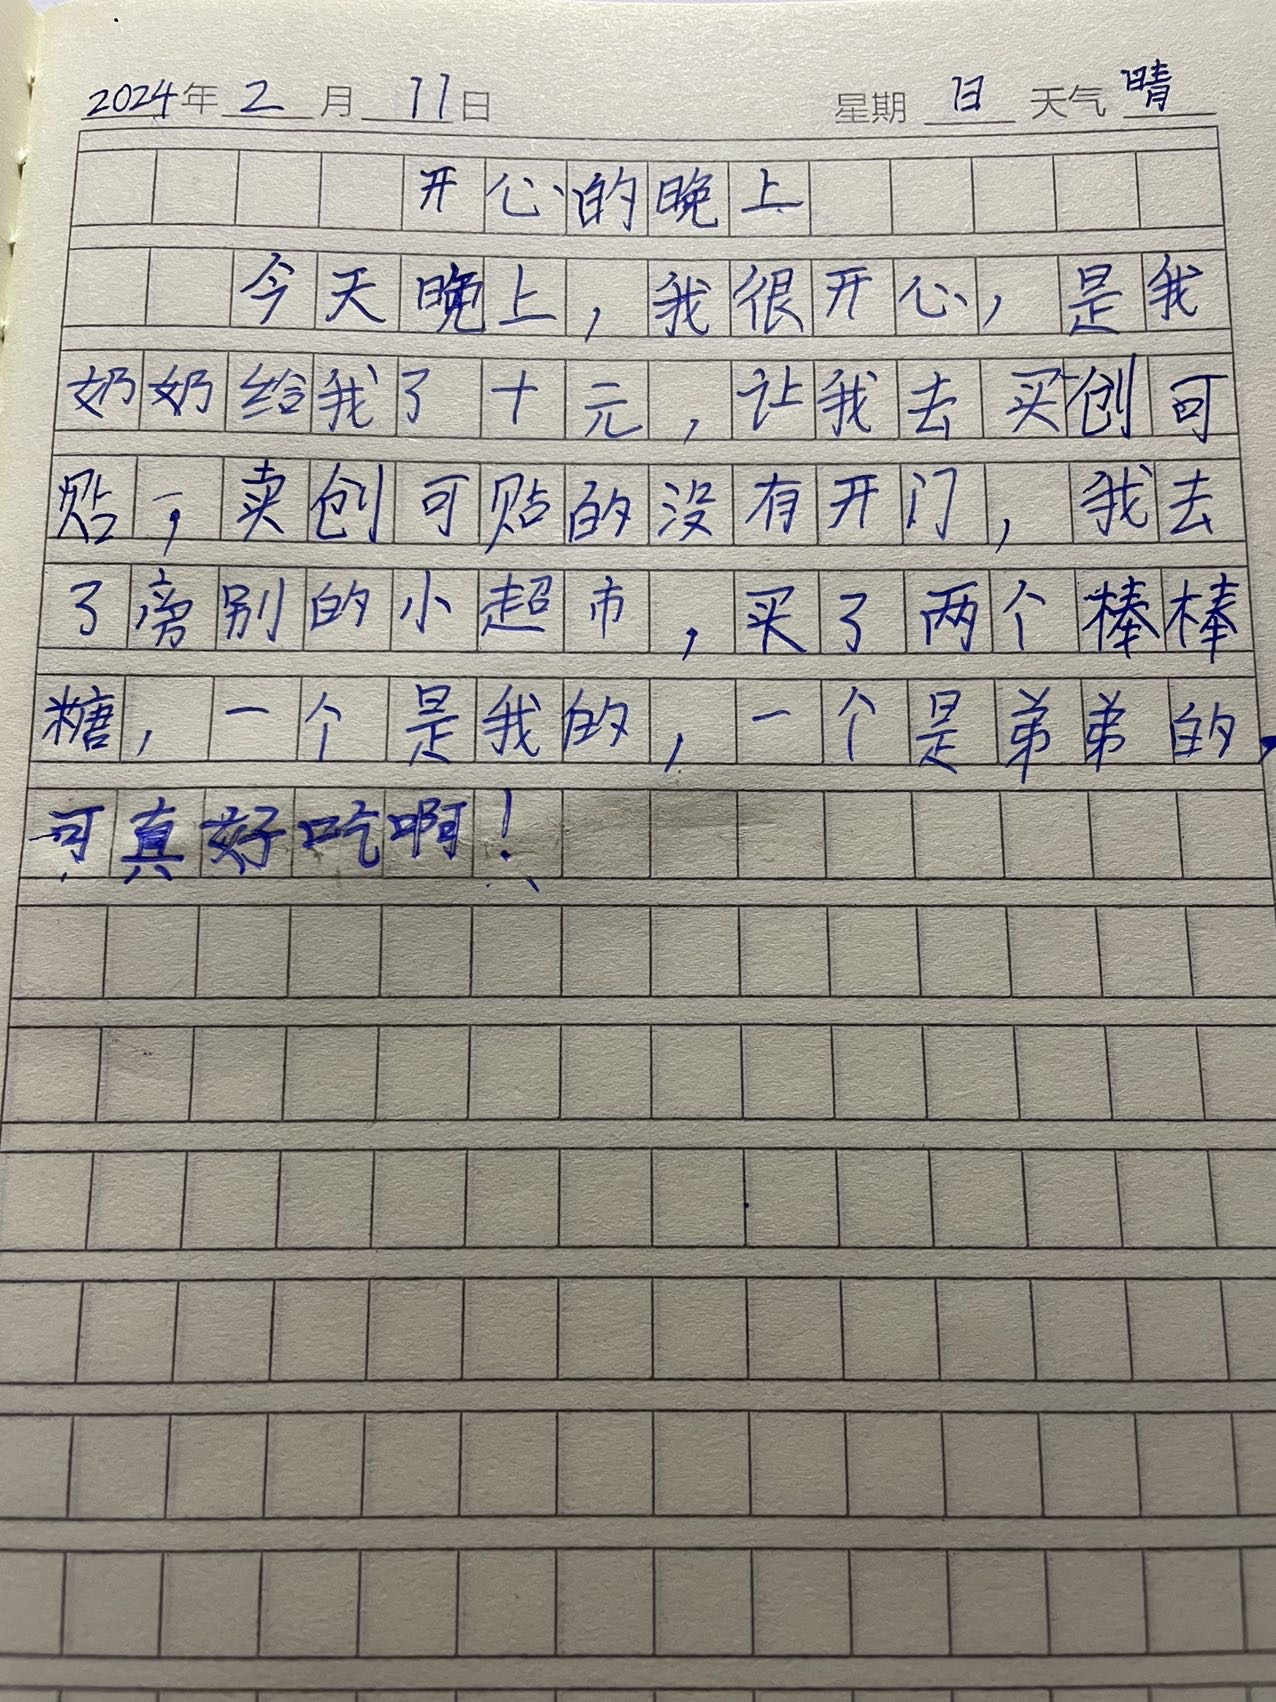 2024年 2 月 11日 星期 日 天气 晴
开心的晚上
今天晚上，我很开心，是我
奶奶给我了十元，让我去买创可
贴，卖创可贴的没有开门，我去
了旁别的小超市，买了两个棒棒
糖，一个是我的，一个是弟弟的，
可真好吃啊！